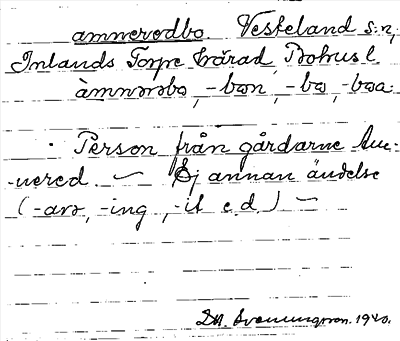 ammeredbo. Vesteland s:n,
Inlands Torpe härad, Bohusl.
àmnərsbo, -bon, -bo, -boa
· Person från gårdarne Am-
-nered. — Ej annan ändelse
(-are, -ing, -it e.d.) —
D.A. Svenningson. 1920.